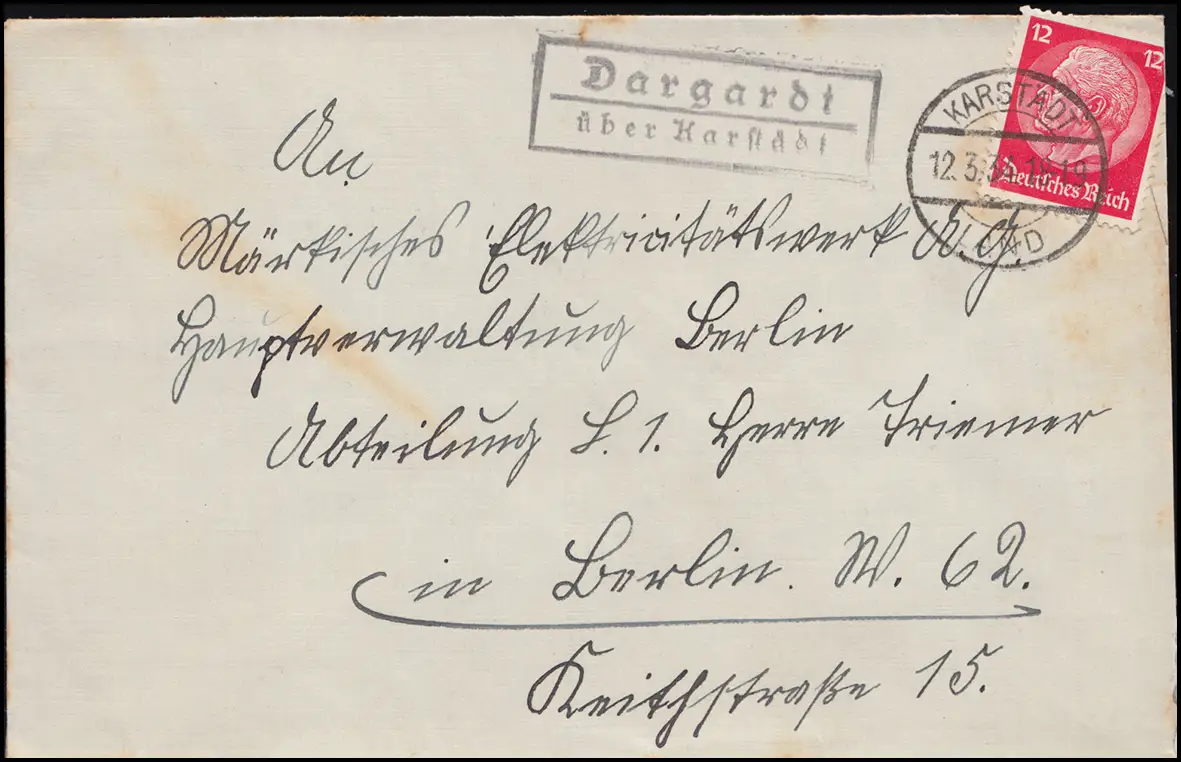 Dargardt
über Karstädt
12 12
Deutsches Reich
KARSTÄDT
12.3.34.18-19
LAND
An
Märkisches Elektricitätswerk A. G.
Hauptverwaltung Berlin
Abteilung L. 1. Herrn Triemer
in Berlin. W. 62.
Keithstraße 15.